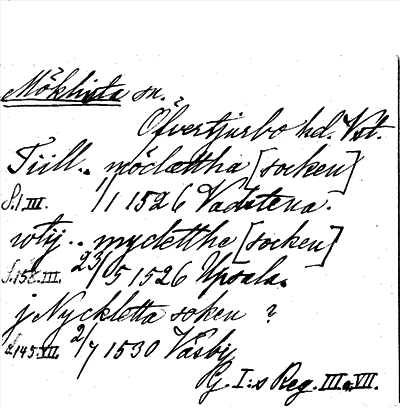 Möklinta sn.
Öfvertjurbo hd. Vst.
Tiill.. möclættha [socken]
S. 1. III. 1/1 1526 Vadstena.
wtij.. mycletthe [socken]
S. 158. III. 23/5 1526 Upsala.
j Nyckletta soken ?
s. 145. VII. 2/7 1530 Väsby
G. I:s Reg. III o. VII.